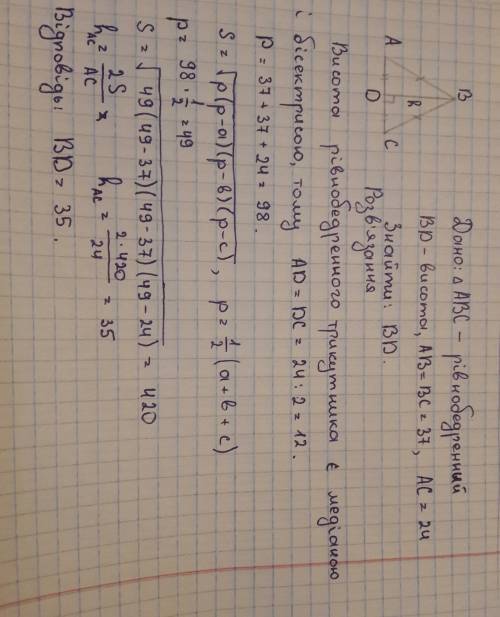 Дано: △ ABC - рівнобедренний
BD - висота, AB = BC = 37, AC = 24
Знайти: BD.
Розв'язання
B
A
R
C
D
Висота рівнобедренного трикутника є медіаною
і бісектрисою, тому AD = DC = 24 : 2 = 12.
P = 37 + 37 + 24 = 98.
S = √p(p-a)(p-в)(p-c), p = 1/2 (a + в + c)
p = 98 · 1/2 = 49
S = √49(49-37)(49-37)(49-24) = 420
h_AC = 2S/AC, h_AC = 2·420/24 = 35
Відповідь: BD = 35.